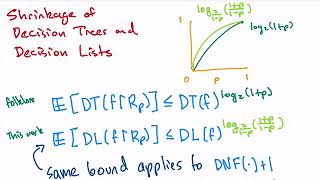 Shrinkage of
Decision Trees and
Decision Lists
1
log_{2/(1-p)}((1+p)/(1-p))
log_2(1+p)
0 p 1
folklore E[DT(f↾R_p)] ≤ DT(f)^{log_2(1+p)}
This work E[DL(f↾R_p)] ≤ DL(f)^{log_{2/(1-p)}((1+p)/(1-p))}
same bound applies to DNF(·)+1